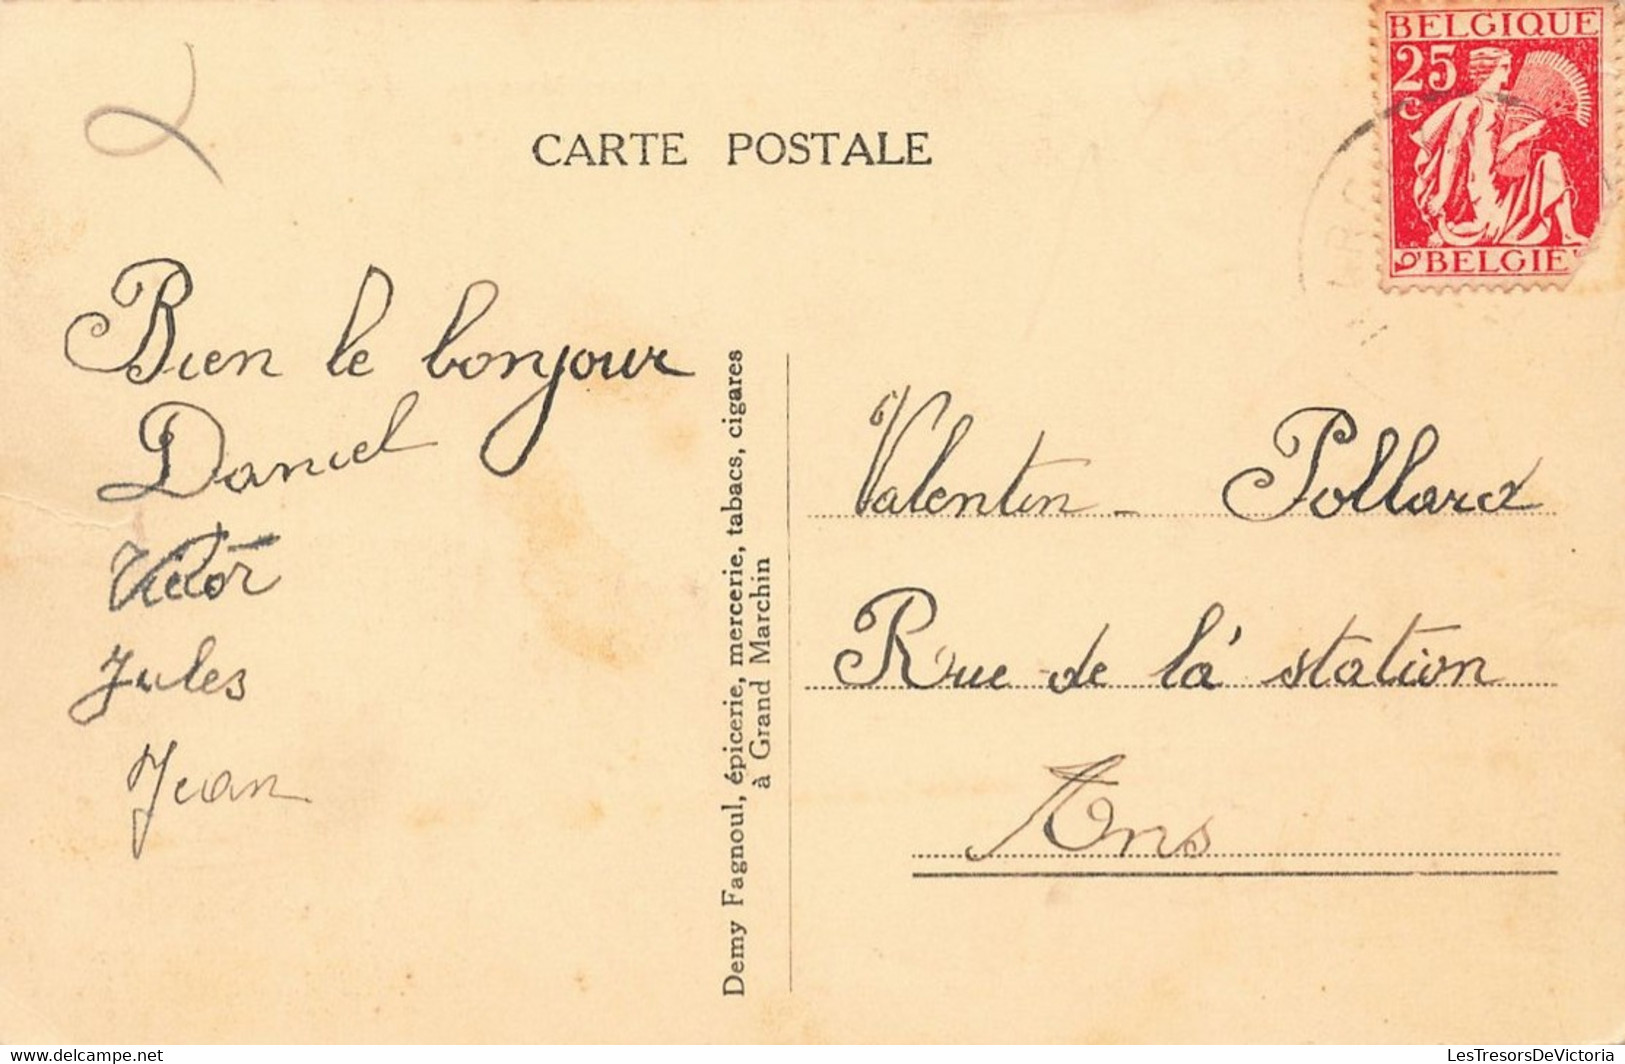 BELGIQUE
25
C
BELGIE
CARTE POSTALE
Bien le bonjour
Daniel
Victor
Jules
Jean
Demy Fagnoul, épicerie, mercerie, tabacs, cigares
à Grand Marchin
Valentin - Pollard
Rue de la station
Ans
www.delcampe.net
LesTresorsDeVictoria